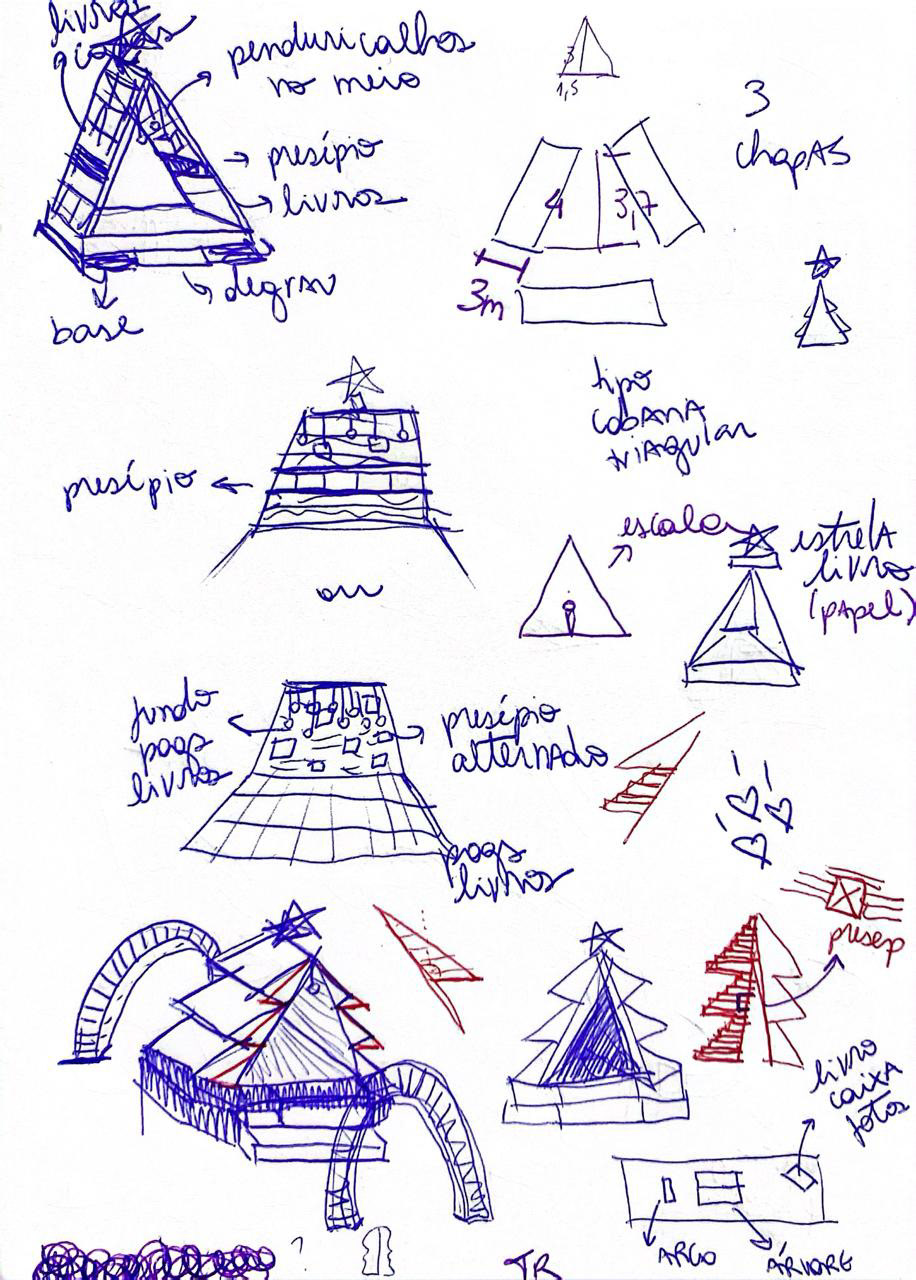 livros
caixas
penduricalhos
no meio
presípio
livros
degrau
base
3
1,5
3
chapas
4
3,7
3m
tipo
cabana
triangular
presípio
ou
escala
estrela
livro
(papel)
fundo
pags
livros
presípio
alternado
pags
livros
presep
livro
caixa
fotos
ARCO
ÁRVORE
?
TR